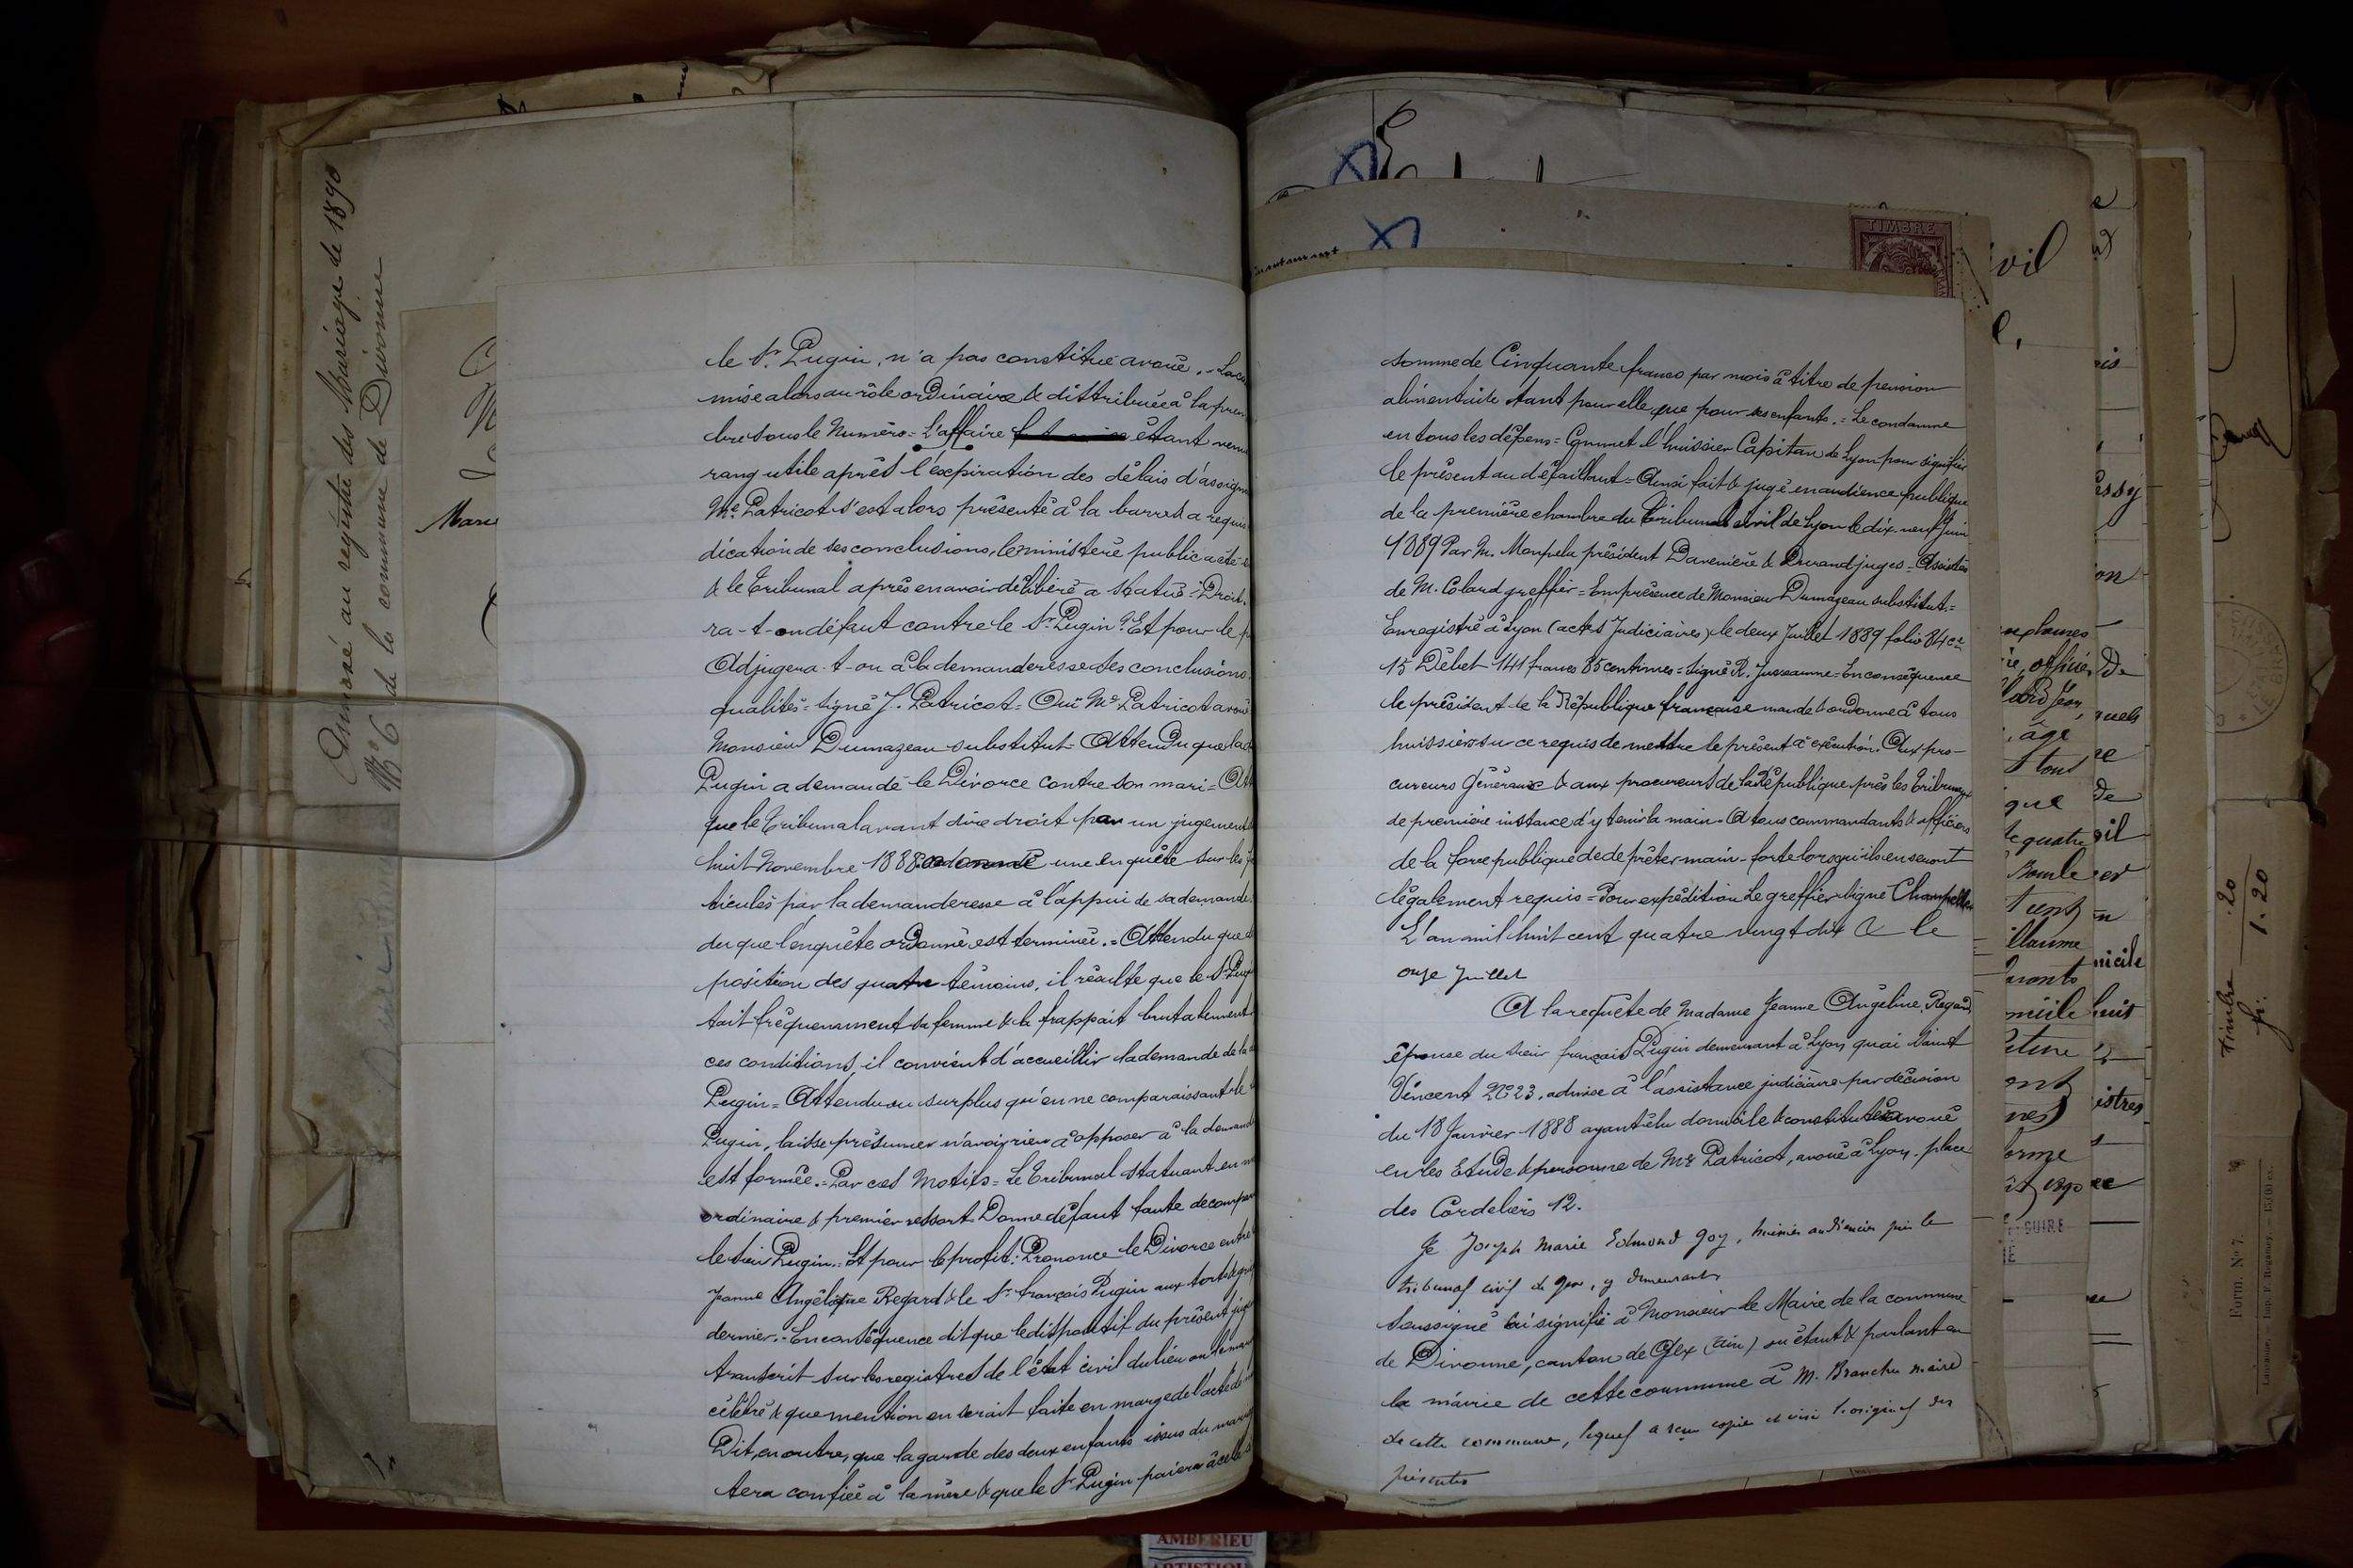 Annexé au registre des Mariages de 1890
N° 6 de la commune de Divonne
Marie
le Sr. Pugin, n'a pas constitué avoué. = La ca
mise alors au rôle ordinaire & distribuée à la prem
bre sous le Numéro = L'affaire étant venu
rang utile après l'expiration des délais d'assign
Me. Patricot s'est alors présenté à la barre & a requis
dication de ses conclusions, le ministère public a été
& le Tribunal après en avoir délibéré a statué = Droit.
ra-t-on défaut contre le Sr. Pugin? Et pour le p
Adjugera-t-on à la demanderesse ses conclusions
qualités = Signé J. Patricot = Ouï Me Patricot avoué
Monsieur Dumazeau substitut = Attendu que la d
Pugin a demandé le Divorce contre son mari = Att
que le Tribunal avant dire droit par un jugement
huit Novembre 1888 ordonné une enquête sur les f
ticulés par la demanderesse à l'appui de sa demande
du que l'enquête ordonnée est terminée. = Attendu que d
position des quatre témoins, il résulte que le Sr Pugi
tait fréquemment sa femme & la frappait brutalement
ces conditions, il convient d'accueillir la demande de la
Pugin = Attendu au surplus qu'en ne comparaissant le
Pugin, laisse présumer n'avoir rien à opposer à la demand
est formée. = Par ces Motifs = Le Tribunal statuant en m
ordinaire & premier ressort Donne défaut faute de compar
le sieur Pugin. = Et pour le profit: Prononce le Divorce entre
Jeanne Angélique Regard & le Sr. françois Pugin aux torts
dernier. = En conséquence dit que le dispositif du présent jug
transcrit sur les registres de l'état civil du lieu où le mar
célébré & que mention en serait faite en marge de l'acte de
Dit, en outre, que la garde des deux enfants issus du mari
sera confiée à la mère & que le Sr Pugin paiera à celle
TIMBRE
somme de Cinquante francs par mois à titre de pension
alimentaire tant pour elle que pour ses enfants. = Le condamne
en tous les dépens = Commet l'huissier Capitan de Lyon pour signifier
le présent au défaillant = Ainsi fait & jugé en audience publique
de la première chambre du Tribunal civil de Lyon le dix neuf Juin
1889 Par M. président Davenière & Durand juges = Assistés
de M. Colard greffier = En présence de Monsieur Dumazeau substitut. =
Enregistré à Lyon (actes Judiciaires) le deux Juillet 1889 folio 84 ce
15 Débet 141 francs 85 centimes = Signé R. Jusseaume = En conséquence
le président de la République française mande & ordonne à tous
huissiers sur ce requis de mettre le présent à exécution. Aux pro-
cureurs Généraux & aux procureurs de la République près les Tribunaux
de première instance d'y tenir la main. A tous commandants & officiers
de la force publique de prêter main-forte lorsqu'ils en seront
légalement requis = Pour expédition Le greffier signé
L'an mil huit cent quatre vingt dix & le
onze Juillet
A la requête de Madame Jeanne Angeline Regard
épouse du sieur françois Pugin demeurant à Lyon, quai Saint
Vincent No 23, admise à l'assistance judiciaire par décision
du 18 Janvier 1888 ayant élu domicile & constitué avoué
en les Etude & personne de Me Patricot, avoué à Lyon place
des Cordeliers 12.
Je Joseph Marie Edmond Goy, huissier audiencier près le
tribunal civil de Gex, y demeurant,
Soussigné ai signifié à Monsieur le Maire de la commune
de Divonne, canton de Gex (Ain) où étant & parlant en
la mairie de cette commune à M. maire
de cette commune, lequel a reçu copie et visé l'original des
présentes
vil
officier
âge
tout
que
quatre
illaume
nicile
huit
istres
Timbre .20
1.20
Form. No 7.
AMBERIEU